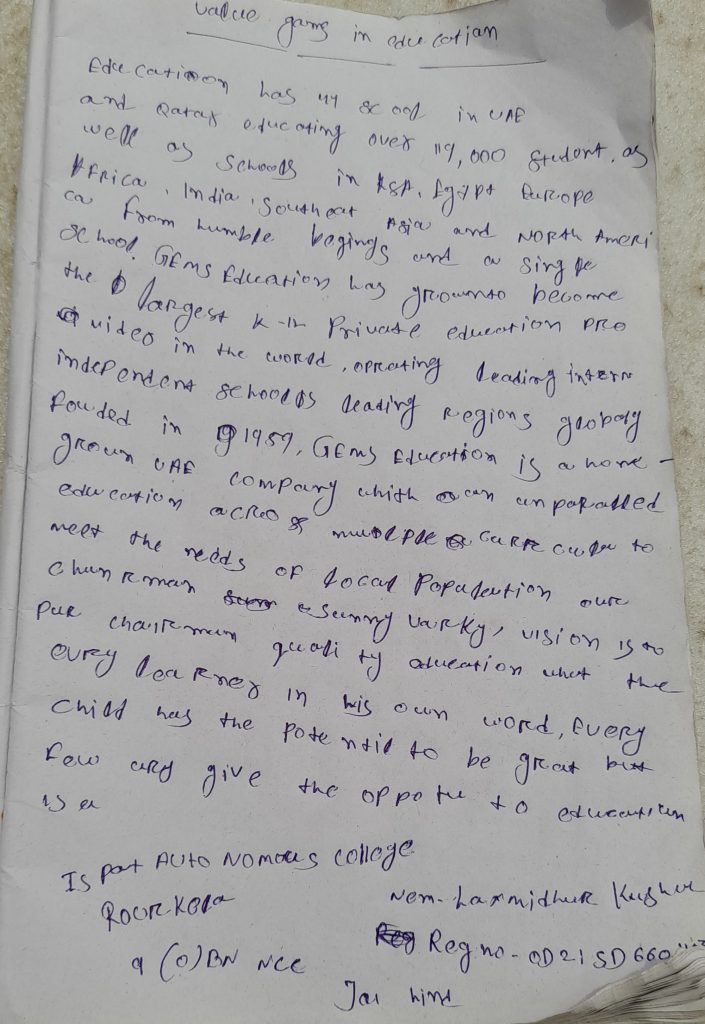 value gams in education
Education has 44 scool in UAE
and Qatar educating over 119,000 student, as
well as schools in KSA, Egypt Europe
Africa, India, Southeat Asia and NORth Ameri
ca from humble begings and a single
school. GEMS Education has grownto become
the largest K-12 Private education pro
video in the world, oprating leading intern
independent schools leading regions globaly
Fouded in 1959, GEMS Education is a home-
grown UAE company whith an unparalled
education acros multple carrcula to
meet the needs of local Population our
chairman Sunny Varky, vision is to
put chairman quality education what the
every learner in his own word, Every
child has the potentil to be great but
few any give the oppotu to education
is a
Ispat AUTONOMOUS College
Rourkela
Nem- Laxmidhur
Reg no - OD21SD660
9 (O) BN NCC
Jai hind